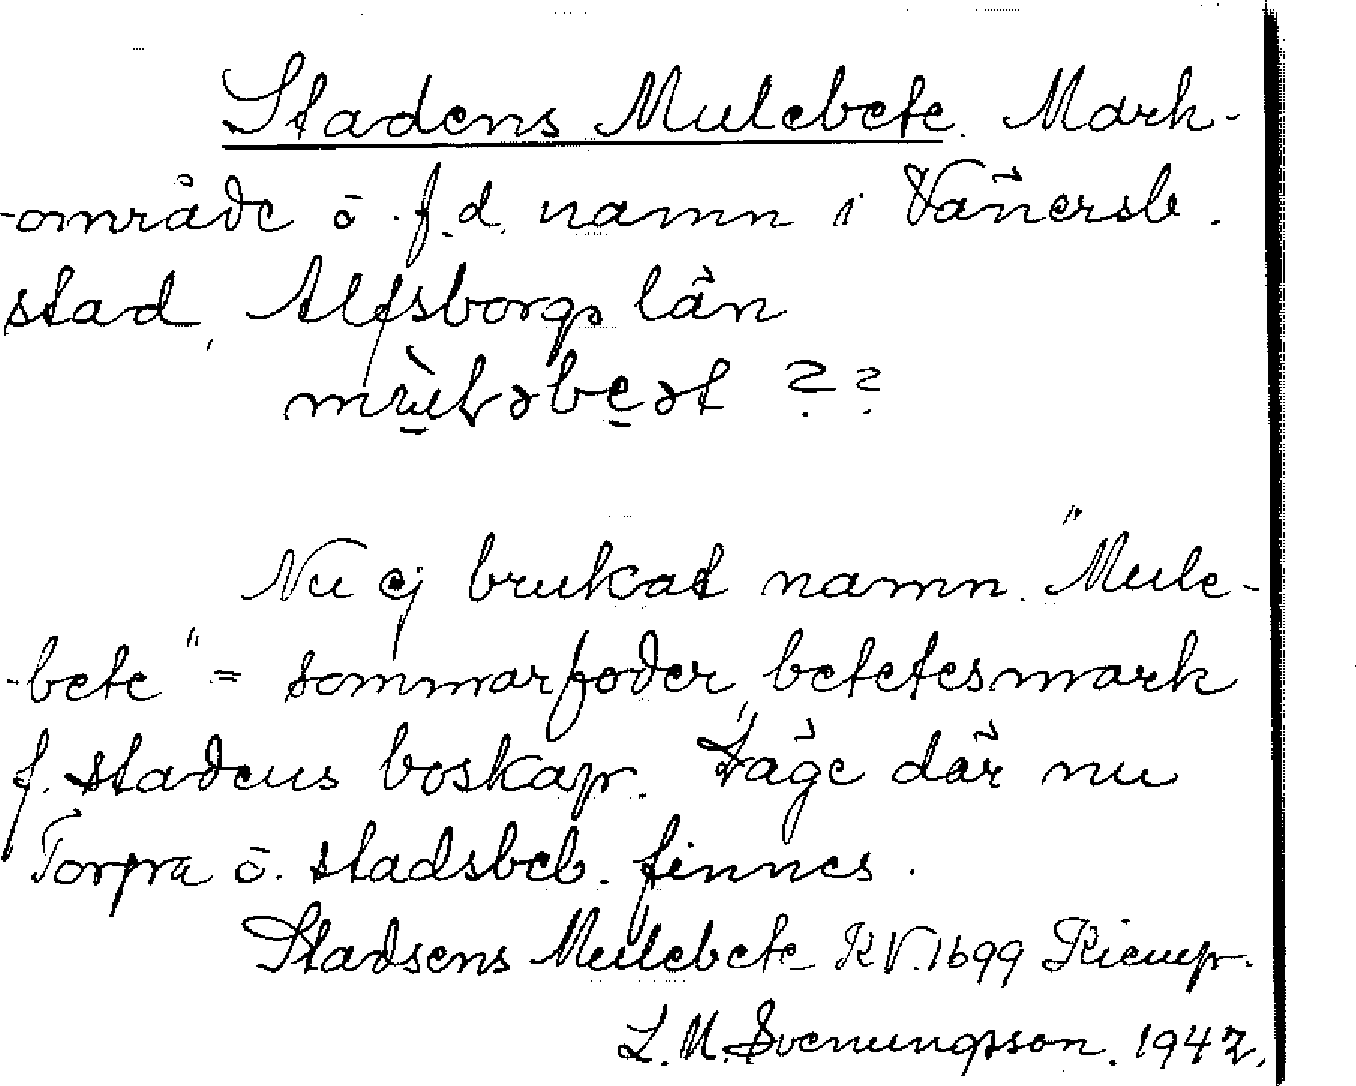 Stadens Mulebete. Mark-
-område ō. f.d. namn i Vänersb.
stad, Älfsborgs län
??
Nu ej brukat namn. "Mule-
-bete" = sommarfoder, betetesmark
f. stadens boskap. Läge där nu
Torpa ō. stadsbeb. finnes.
Stadsens Mulebete RV.1699
L.M. Svenungsson. 1942.